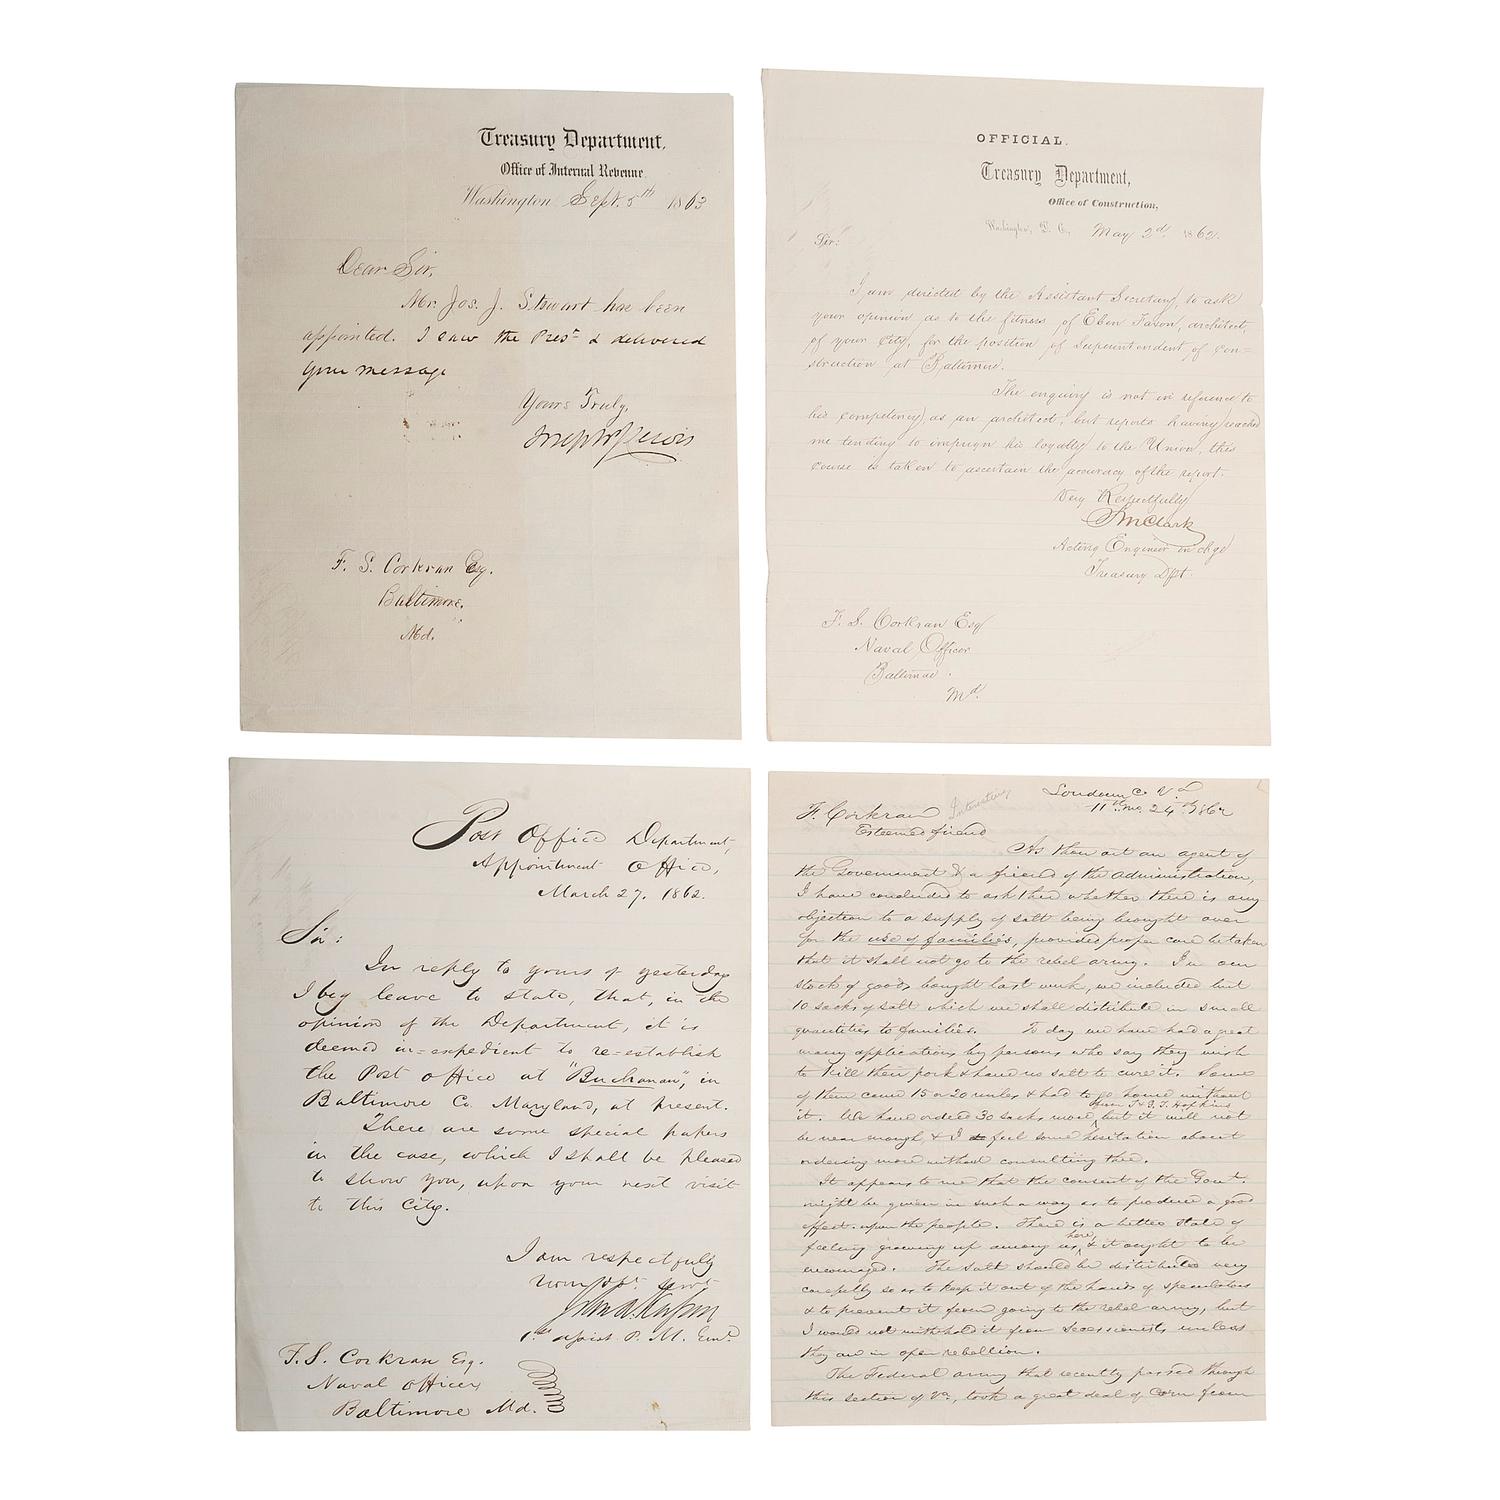 Treasury Department,
Office of Internal Revenue
Washington Sept. 5th 1863
Dear Sir,
Mr. Jos. J. Stewart has been
appointed. I saw the Prest & delivered
your message
Yours Truly,
F. S. Corkran Esq.
Baltimore,
Md.
OFFICIAL.
Treasury Department,
Office of Construction,
Washington, D. C., May 2d 1862.
Sir:
I am directed by the Assistant Secretary, to ask
your opinion as to the fitness of Eben Faxon, architect,
of your City, for the position of Superintendent of Con=
struction at Baltimore.
The enquiry is not in reference to
his competency as an architect, but reports having reached
me tending to impugn his loyalty to the Union, this
course is taken to ascertain the accuracy of the report.
Very Respectfully
S M Clark
Acting Engineer in chge
Treasury Dpt.
F. S. Corkran Esq
Naval Officer
Baltimore.
Md.
Post Office Department,
Appointment Office,
March 27, 1862.
Sir:
In reply to yours of yesterday
I beg leave to state, that, in the
opinion of the Department, it is
deemed in=expedient to re=establish
the Post office at "Buchanan", in
Baltimore Co. Maryland, at present.
There are some special papers
in the case, which I shall be pleased
to show you, upon your next visit
to this City.
I am respectfully
your obt. servt
1st assist P. M. Genl
F. S. Corkran Esq.
Naval officer
Baltimore Md.
Loudoun Co Va
11th mo. 24th 1862
F. Corkran Interesting
Esteemed friend
As thou art an agent of
the Government & a friend of the administration,
I have concluded to ask thee whether there is any
objection to a supply of salt being brought over
for the use of families, provided proper care be taken
that it shall not go to the rebel army. In our
stock of goods bought last week, we included but
10 sacks of salt which we shall distribute in small
quantities to families. To day we have had a great
many applications by persons who say they wish
to kill their pork & have no salt to cure it. Some
of them came 15 or 20 miles & had to go home without
it. We have ordered 30 sacks more from J & G. T. Hopkins but it will not
be near enough, & I feel some hesitation about
ordering more without consulting thee.
It appears to me that the consent of the Govt.
might be given in such a way as to produce a good
effect upon the people. There is a better state of
feeling growing up among us here, & it ought to be
encouraged. The salt should be distributed very
carefully so as to keep it out of the hands of speculators
& to prevent it from going to the rebel army, but
I would not withhold it from Secessionists unless
they are in open rebellion.
The Federal army that recently passed through
this section of Va, took a great deal of Corn from